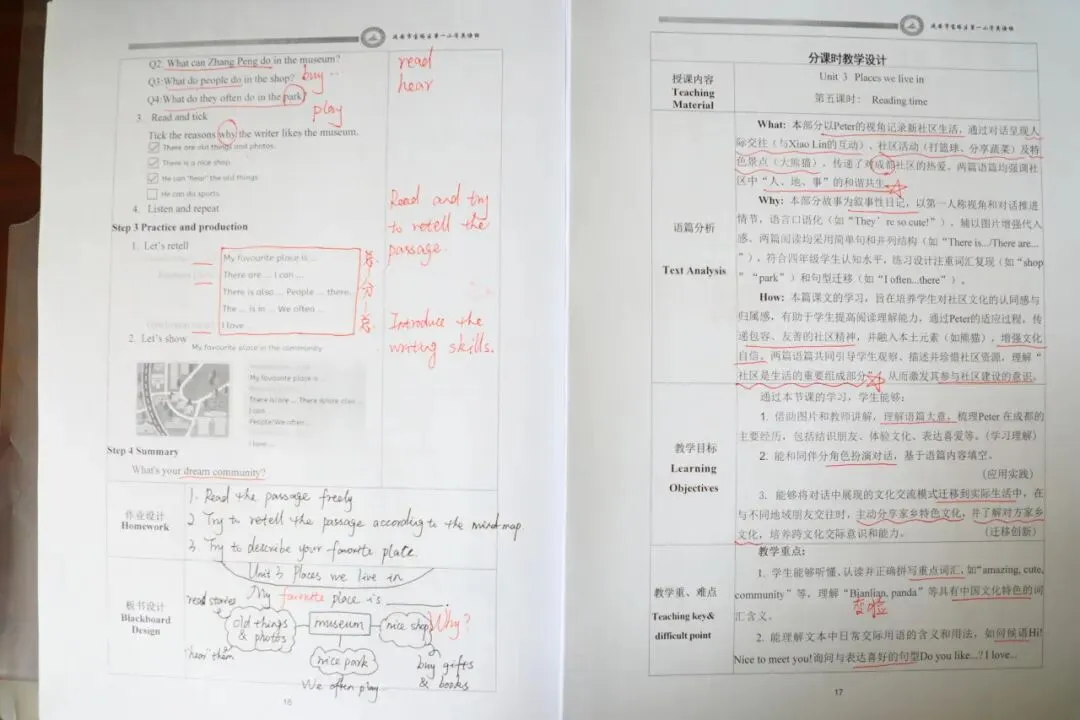 Q2: What can Zhang Peng do in the museum?
Q3: What do people do in the shop? buy
Q4: What do they often do in the park?
play
read
hear
3. Read and tick
Tick the reasons why the writer likes the museum.
There are old things and photos.
There is a nice shop.
He can "hear" the old things.
He can do sports.
4. Listen and repeat
Step 3 Practice and production
1. Let's retell
My favourite place is ...
There are ... I can ...
There is also ... People ... there.
The ... is in ... We often ...
I love ...
总
分
总
Read and try
to retell the
passage.
Introduce the
writing skills.
2. Let's show
My favourite place in the community
My favourite place is
There is/are ... There is/are also ...
I can ...
People/We often ...
I love ...
Step 4 Summary
What's your dream community?
作业设计
Homework
1. Read the passage freely
2 Try to retell the passage according to the mind map
3 Try to describe your favorite place.
板书设计
Blackboard
Design
Unit 3 Places we live in
My favorite place is
read stories
old things
& photos
museum
nice shop
Why?
"hear" them
nice park
We often play
buy gifts
& books
16
分课时教学设计
授课内容
Teaching
Material
Unit 3 Places we live in
第五课时: Reading time
语篇分析
Text Analysis
What: 本部分以Peter的视角记录新社区生活，通过对话呈现人
际交往（与Xiao Lin的互动）、社区活动（打篮球、分享蔬菜）及特
色景点（大熊猫），传递了对成都社区的热爱。两篇语篇均强调社
区中“人、地、事”的和谐共生
Why: 本部分故事为叙事性日记，以第一人称视角和对话推进
情节，语言口语化（如“They're so cute!”），辅以图片增强代入
感。两篇阅读均采用简单句和并列结构（如“There is.../There are...
”），符合四年级学生认知水平。练习设计注重词汇复现（如“shop
”“park”）和句型迁移（如“I often...there”）。
How: 本篇课文的学习，旨在培养学生对社区文化的认同感与
归属感，有助于学生提高阅读理解能力，通过Peter的适应过程，传
递包容、友善的社区精神，并融入本土元素（如熊猫），增强文化
自信。两篇语篇共同引导学生观察、描述并珍惜社区资源，理解“
社区是生活的重要组成部分”，从而激发其参与社区建设的意识。
教学目标
Learning
Objectives
通过本节课的学习，学生能够:
1. 借助图片和教师讲解，理解语篇大意，梳理Peter 在成都的
主要经历，包括结识朋友、体验文化、表达喜爱等。（学习理解）
2. 能和同伴分角色扮演对话，基于语篇内容填空。
（应用实践）
3. 能够将对话中展现的文化交流模式迁移到实际生活中，在
与不同地域朋友交往时，主动分享家乡特色文化，并了解对方家乡
文化，培养跨文化交际意识和能力。 （迁移创新）
教学重、难点
Teaching key&
difficult point
教学重点:
1. 学生能够听懂、认读并正确拼写重点词汇，如“amazing, cute,
community”等，理解“Bianlian, panda”等具有中国文化特色的词
变脸
汇含义。
2. 能理解文本中日常交际用语的含义和用法，如问候语Hi!
Nice to meet you!询问与表达喜好的句型Do you like...? I love...
17